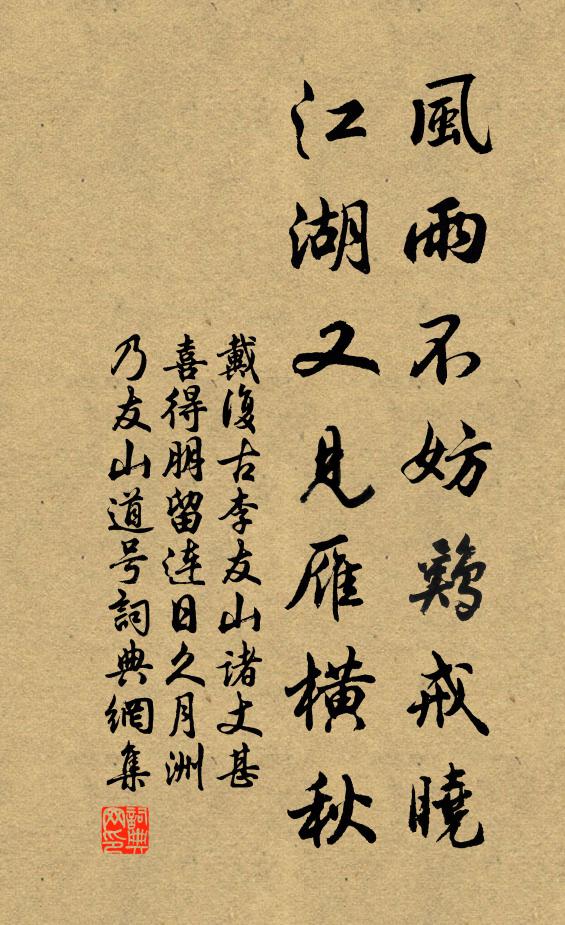 風雨不妨鷄戒曉
江湖又見雁橫秋
戴復古李友山諸丈甚
喜得朋留连日久月洲
乃友山道号詞典網集
詞典网印